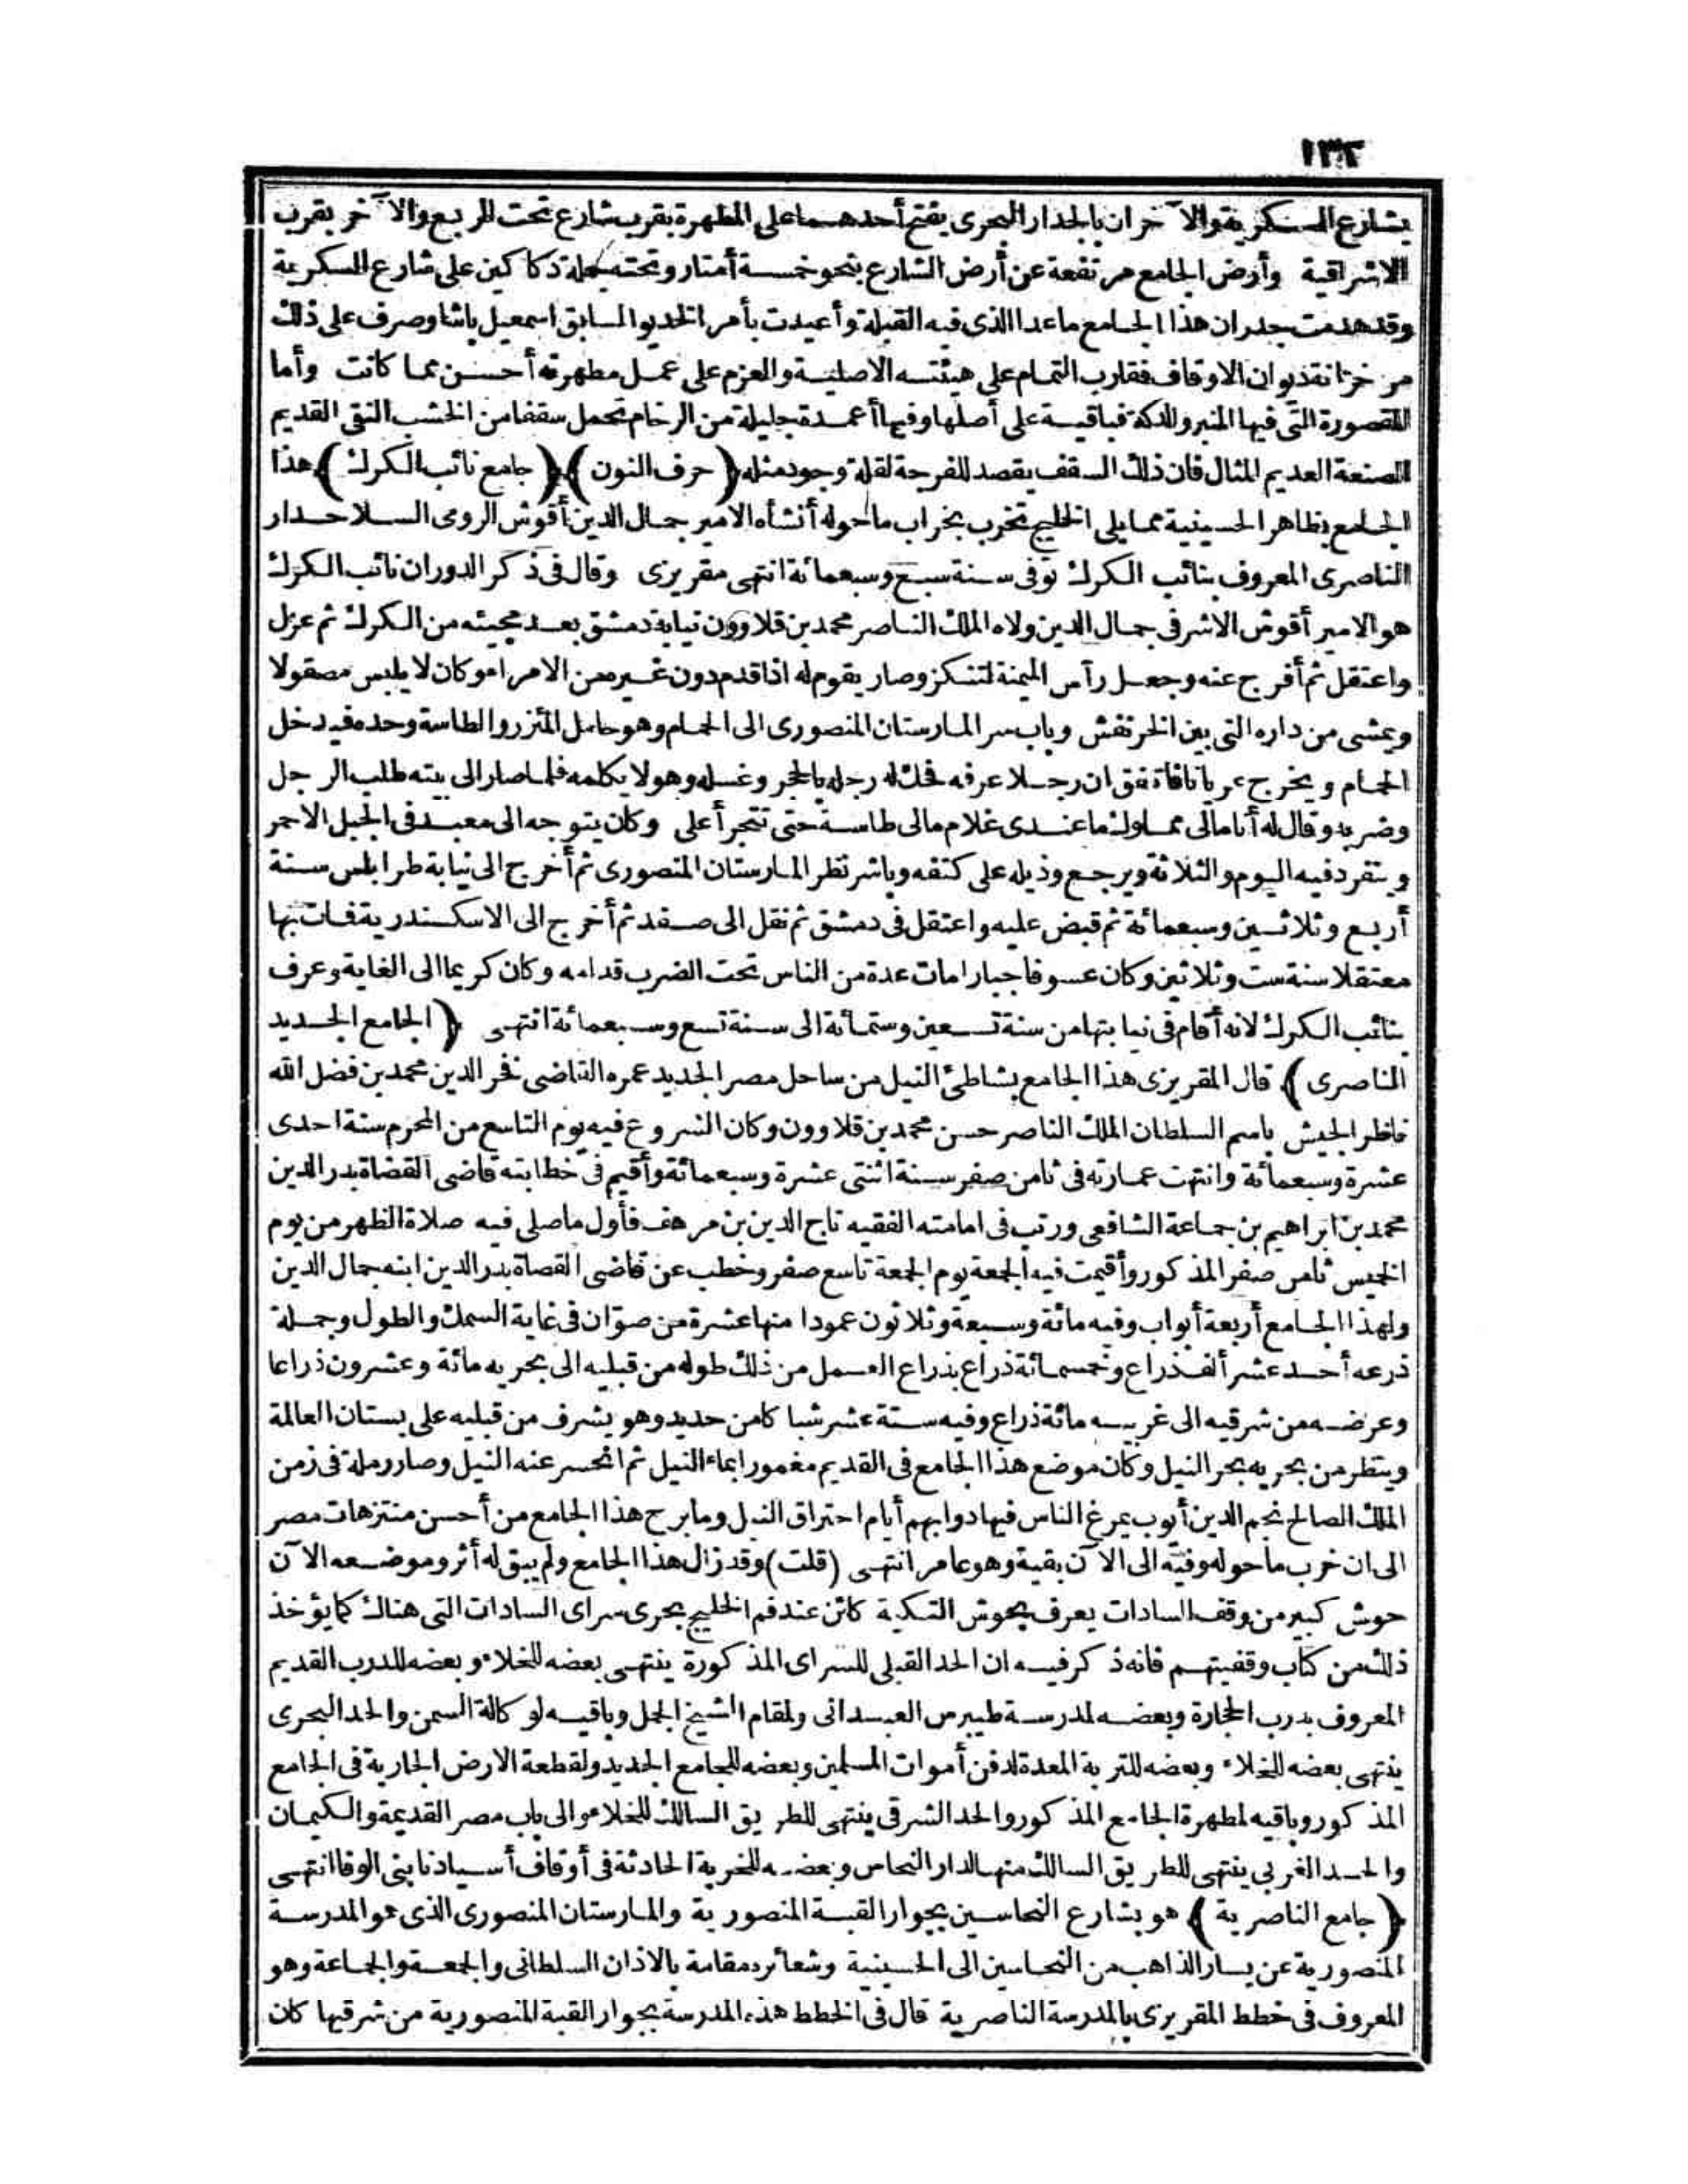 ١٣٢
بشارع السكرية والآخران بالجدار البحرى يفتح أحدهما على المطهرة بقرب شارع تحت الربع والآخر بقرب
الاشراقية وأرض الجامع مرتفعة عن أرض الشارع بنحو خمسة أمتار وتحته جملة دكاكين على شارع السكرية
وقد هدمت جدران هذا الجامع ماعدا الذى فيه القبلة وأعيدت بأمر الخديو السابق اسمعيل باشا وصرف على ذلك
من خزانة ديوان الاوقاف فقارب التمام على هيئته الاصلية والعزم على عمل مطهرته أحسن مما كانت وأما
المقصورة التى فيها المنبر والدكة فباقية على أصلها وفيها أعمدة جليلة من الرخام تحمل سقفا من الخشب النقى القديم
الصنعة العديم المثال فان ذلك السقف يقصد للفرجة لقلة وجود مثله ﴿حرف النون﴾ ﴿جامع نائب الكرك﴾ هذا
الجامع بظاهر الحسينية مما يلى الخليج تخرب بخراب ماحوله أنشأه الامير جمال الدين أقوش الرومى السلاحدار
الناصرى المعروف بنائب الكرك توفى سنة سبع وسبعمائة انتهى مقريزى وقال فى ذكر الدور ان نائب الكرك
هو الامير أقوش الاشرفى جمال الدين ولاه الملك الناصر محمد بن قلاوون نيابة دمشق بعد مجيئه من الكرك ثم عزل
واعتقل ثم أفرج عنه وجعل رآس الميمنة لتنكز وصار يقوم له اذا قدم دون غيره من الامراء وكان لا يلبس مصقولا
ويمشى من داره التى بين الخرنفش وباب سر المارستان المنصورى الى الحمام وهو حامل المئزر والطاسة وحده فيدخل
الحمام ويخرج عريانا فاتفق ان رجلا عرفه فحك له رجله بالحجر وغسله وهو لا يكلمه فلما صار الى بيته طلب الرجل
وضربه وقال له أنا مالى مملوك ما عندى غلام مالى طاسة حتى تتجرأ على وكان يتوجه الى معبد فى الجبل الاحمر
وينفرد فيه اليوم والثلاثة ويرجع وذيله على كتفه وباشر نظر المارستان المنصورى ثم أخرج الى نيابة طرابلس سنة
أربع وثلاثين وسبعمائة ثم قبض عليه واعتقل فى دمشق ثم نقل الى صفد ثم أخرج الى الاسكندرية فمات بها
معتقلا سنة ست وثلاثين وكان عسوفا جبارا مات عدة من الناس تحت الضرب قدامه وكان كريما الى الغاية وعرف
بنائب الكرك لانه أقام فى نيابتها من سنة تسعين وستمائة الى سنة تسع وسبعمائة انتهى ﴿الجامع الجديد
الناصرى﴾ قال المقريزى هذا الجامع بشاطئ النيل من ساحل مصر الجديد عمره القاضى فخر الدين محمد بن فضل الله
ناظر الجيش باسم السلطان الملك الناصر حسن محمد بن قلاوون وكان الشروع فيه يوم التاسع من المحرم سنة احدى
عشرة وسبعمائة وانتهت عمارته فى ثامن صفر سنة اثنتى عشرة وسبعمائة وأقيم فى خطابته قاضى القضاة بدر الدين
محمد بن ابراهيم بن جماعة الشافعى ورتب فى امامته الفقيه تاج الدين بن مرهف فأول ما صلى فيه صلاة الظهر من يوم
الخميس ثامن صفر المذكور وأقيمت فيه الجمعة يوم الجمعة تاسع صفر وخطب عن قاضى القضاة بدر الدين ابنه جمال الدين
ولهذا الجامع أربعة أبواب وفيه مائة وسبعة وثلاثون عمودا منها عشرة من صوّان فى غاية السمك والطول وجملة
ذرعه أحد عشر ألف ذراع وخمسمائة ذراع بذراع العمل من ذلك طوله من قبليه الى بحريه مائة وعشرون ذراعا
وعرضه من شرقيه الى غربيه مائة ذراع وفيه ستة عشر شباكا من حديد وهو يشرف من قبليه على بستان العالمة
وينظر من بحريه بحر النيل وكان موضع هذا الجامع فى القديم مغمورا بماء النيل ثم انحسر عنه النيل وصار رملة فى زمن
الملك الصالح نجم الدين أيوب يمرغ الناس فيها دوابهم أيام احتراق النيل وما برح هذا الجامع من أحسن منتزهات مصر
الى ان خرب ماحوله وفيه الى الآن بقية وهو عامر انتهى (قلت) وقد زال هذا الجامع ولم يبق له أثر وموضعه الآن
حوش كبير من وقف السادات يعرف بحوش التكية كائن عند فم الخليج بحرى سراى السادات التى هناك كما يؤخذ
ذلك من كتاب وقفيتهم فانه ذكر فيه ان الحد القبلى للسراى المذكورة ينتهى بعضه للخلاء وبعضه للدرب القديم
المعروف بدرب الحجارة وبعضه لمدرسة طيبرس العبدانى ولمقام الشيخ الجمل وباقيه لوكالة السمن والحد البحرى
ينتهى بعضه للخلاء وبعضه للتربة المعدة لدفن أموات المسلمين وبعضه للجامع الجديد ولقطعة الارض الجارية فى الجامع
المذكور وباقيه لمطهرة الجامع المذكور والحد الشرقى ينتهى للطريق السالك للخلاء والى باب مصر القديمة والكيمان
والحد الغربى ينتهى للطريق السالك منها لدار النحاس وبعضه للخربة الحادثة فى أوقاف أسيادنا بنى الوفا انتهى
﴿جامع الناصرية﴾ هو بشارع النحاسين بجوار القبة المنصورية والمارستان المنصورى الذى هو المدرسة
المنصورية عن يسار الذاهب من النحاسين الى الحسينية وشعائره مقامة بالاذان السلطانى والجمعة والجماعة وهو
المعروف فى خطط المقريزى بالمدرسة الناصرية قال فى الخطط هذه المدرسة بجوار القبة المنصورية من شرقيها كان